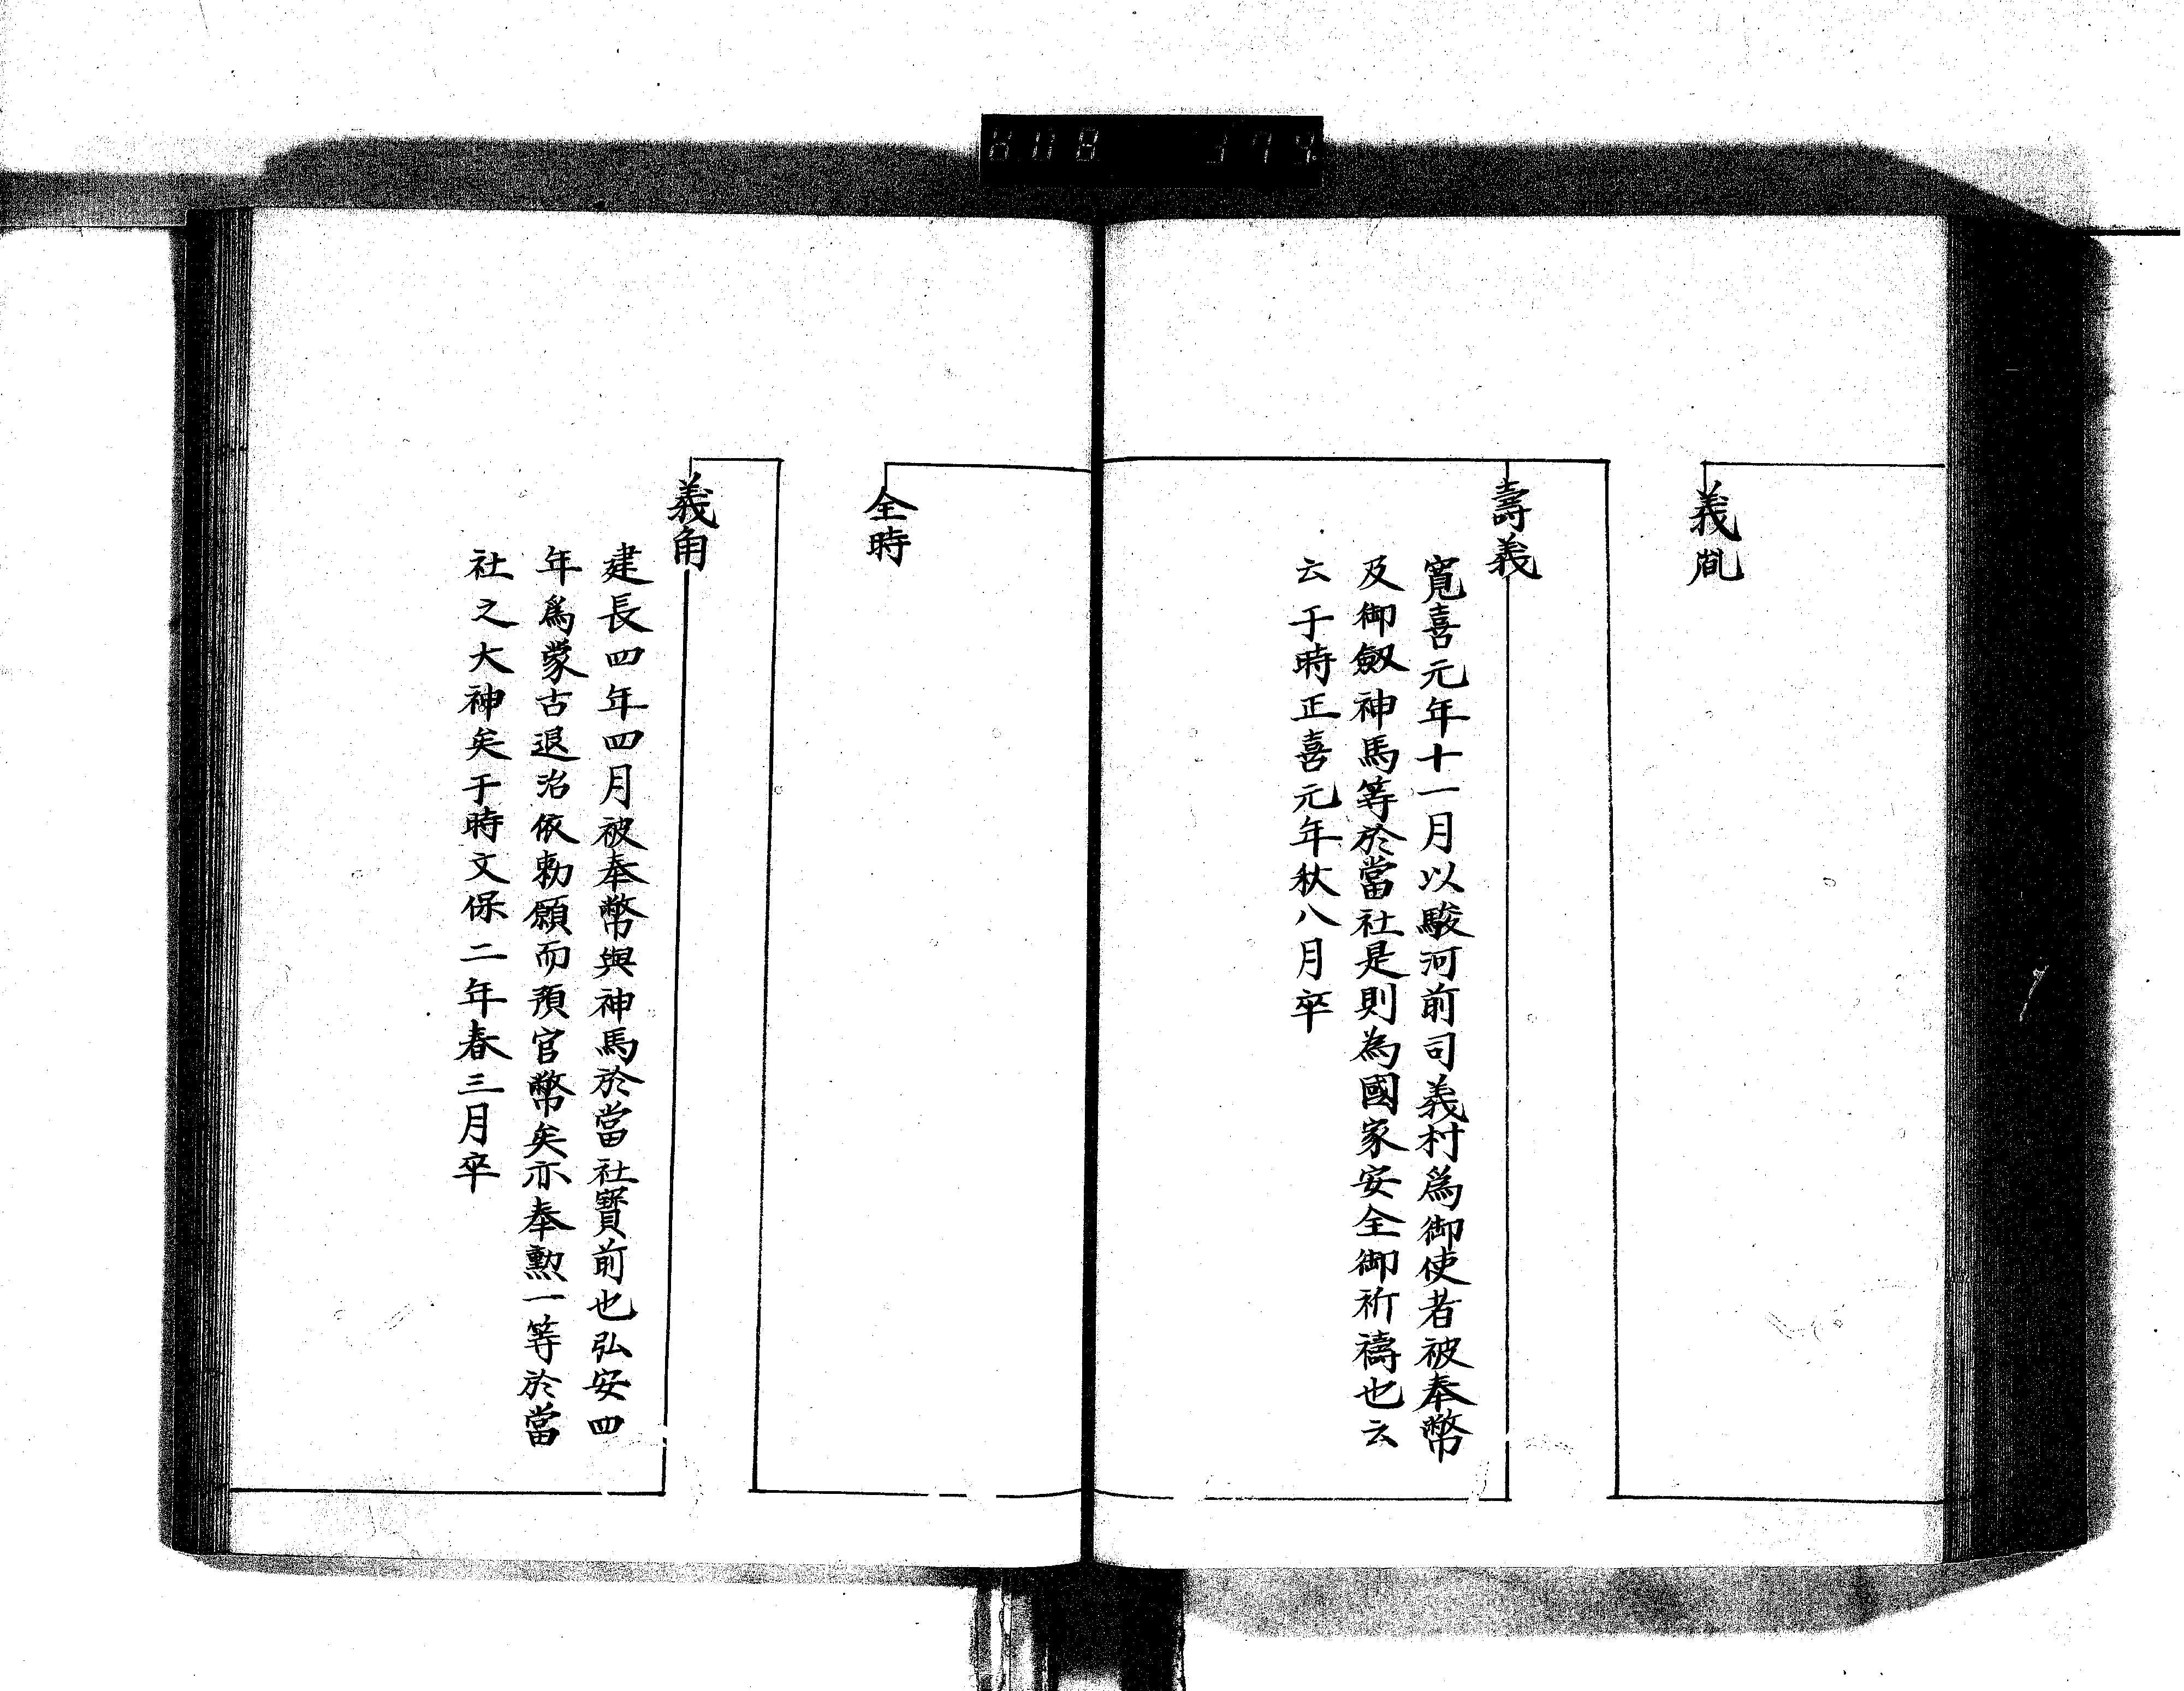 義胤
壽義
寬喜元年十一月以駿河前司義村爲御使者被奉幣
及御劔神馬等於當社是則為國家安全御祈禱也云
云于時正喜元年秋八月卒
全時
義角
建長四年四月被奉幣與神馬於當社寶前也弘安四
年爲蒙古退治依勅願而預官幣矣亦奉勲一等於當
社之大神矣于時文保二年春三月卒